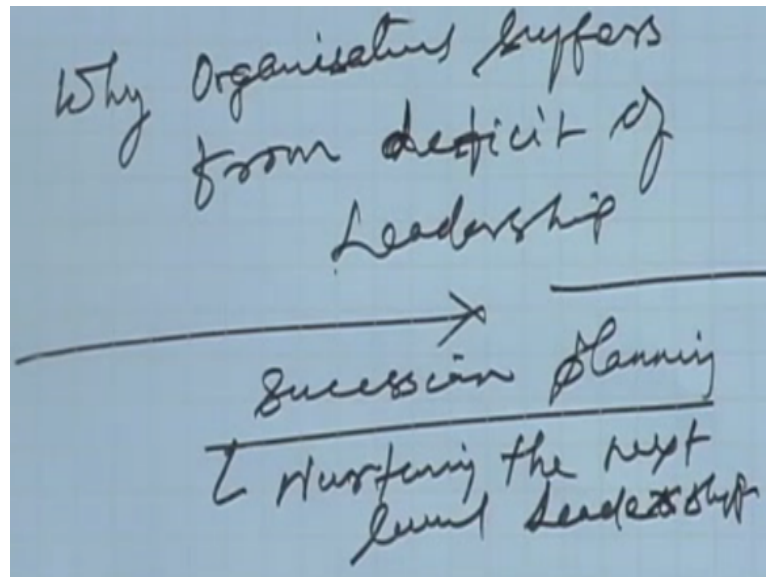 Why Organisations suffers
from deficit of
Leadership
Sucession planning
Nurturing the next
level Leadership